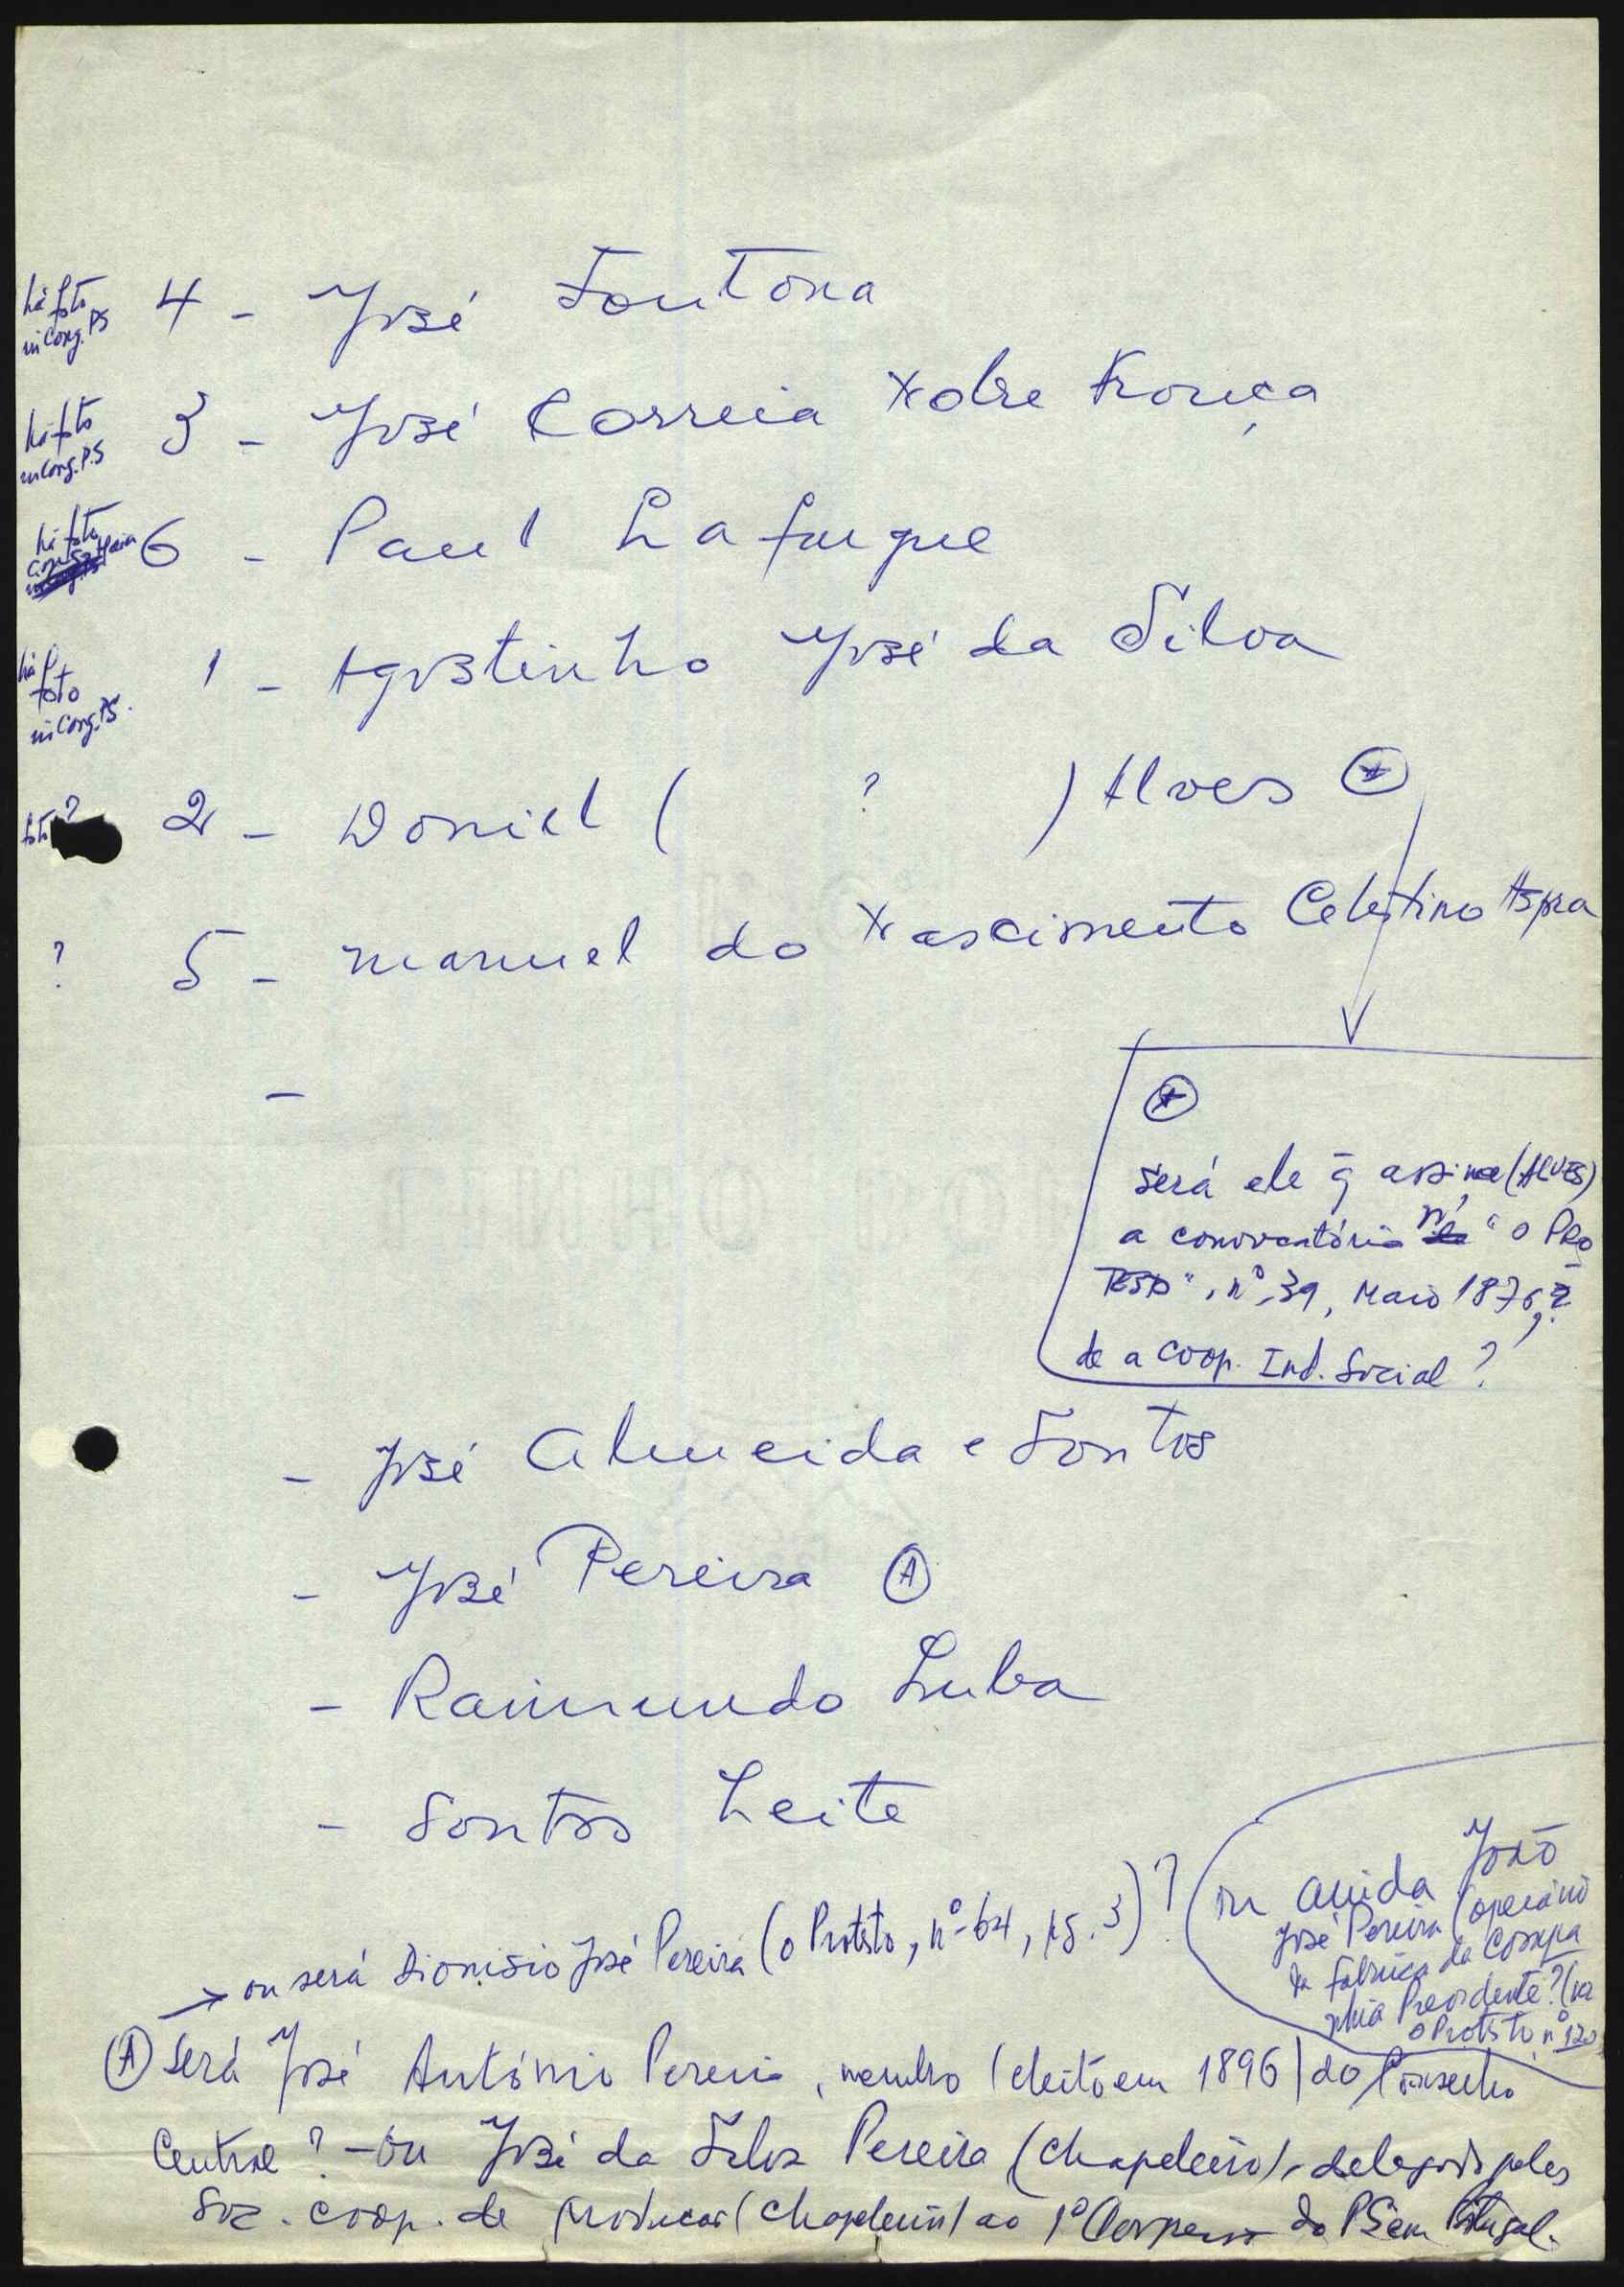 há foto in Cong. PS 4 - José Fontana
há foto in Cong. P.S 3 - José Correia Nobre França
há foto 6 - Paul Lafargue
há foto in Cong. PS. 1 - Agostinho José da Silva
foto? 2 - Daniel ( ? ) Alves ⊛
? 5 - Manuel do Nascimento Celestino Aspra
-
⊛
será ele q̃ assina (ALVES)
a convocatória n' "O PRO
TESTO", nº 39, Maio 1876,
de a Coop. Ind. Social ?
- José Almeida e Santos
- José Pereira Ⓐ
- Raimundo Luba
- Santos Leite
→ ou será Dionisio José Pereira (O Protesto, nº 64, pg. 3) ?
ou ainda João
José Pereira (operário
da fábrica da Compa
nhia Previdente? (in
O Protesto, nº 120
Ⓐ Será José António Pereira, membro (eleito em 1896) do Conselho
Central ? - ou José da Silva Pereira (chapeleiro), delegado pela
Soc. coop. de producao (chapeleiros) ao 1º Congresso do PS em Portugal.